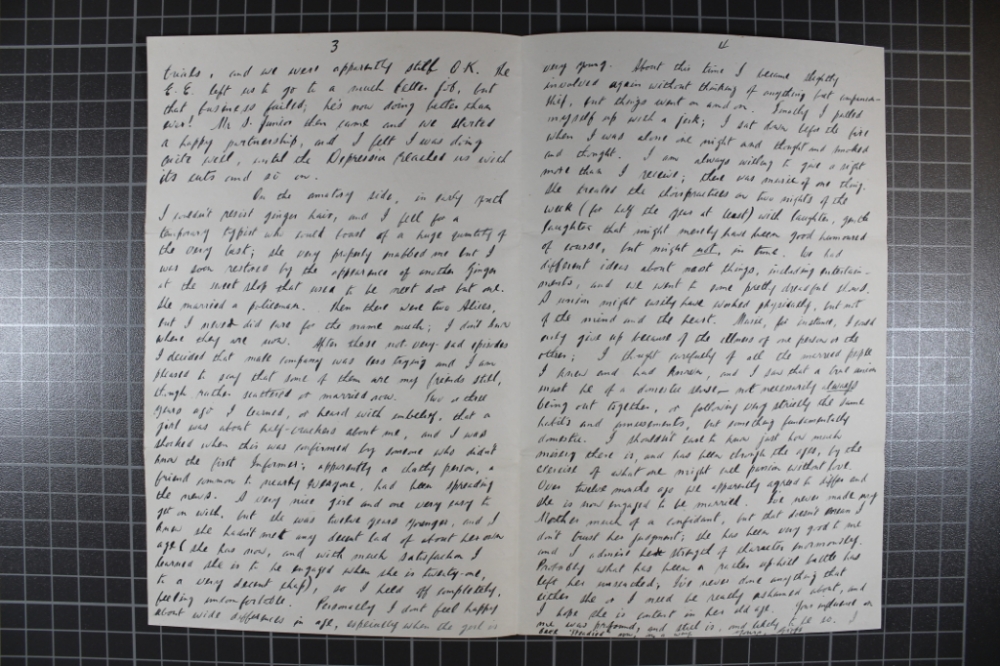 3
tricks, and we were apparently still O.K. The
E.E. left us to go to a much better job, but
that business failed; he's now doing better than
ever! Mr S. Junior then came and we started
a happy partnership, and I felt I was doing
quite well, until the Depression reached us with
its cuts and so on.
On the amatory side, in early youth
I couldn't resist ginger hair, and I fell for a
temporary typist who could boast of a huge quantity of
the very best; she very properly snubbed me but I
was soon restored by the appearance of another Ginger
at the sweet shop that used to be next door but one.
She married a policeman. Then there were two Alices,
but I never did care for the name much; I don't know
where they are now. After those not very-sad episodes
I decided that male company was less trying and I am
pleased to say that some of them are my friends still,
though rather scattered or married now. Two or three
years ago I learned, or heard with unbelief, that a
girl was about half-crackers about me, and I was
shocked when this was confirmed by someone who didn't
know the first Informer; apparently a chatty person, a
friend common to nearly everyone, had been spreading
the news. A very nice girl and one very easy to
get on with, but she was twelve years younger, and I
knew she hadn't met any decent lad of about her own
age (she has now, and with much satisfaction I
learned she is to be engaged when she is twenty-one,
to a very decent chap), so I held off completely,
feeling uncomfortable. Personally I don't feel happy
about wide differences in age, especially when the girl is
4
very young. About this time I became slightly
involved again without thinking of anything but
ship, but things went on and on. Finally I pulled
myself up with a jerk; I sat down before the fire
when I was alone one night and thought and smoked
and thought. I am always willing to give a sight
more than I receive; there was music for one thing.
She treated the on two nights of the
week (for half the year at least) with laughter,
laughter that might merely have been good humoured
of course, but might not, in time. We had
different ideas about most things, including entertain-
ments, and we went to some pretty dreadful shows.
A union might easily have worked physically, but not
of the mind and the heart. Music, for instance, I could
only give up because of the illness of one person or the
other; I thought carefully of all the married people
I knew and had known, and I saw that a true union
must be of a domestic sense — not necessarily always
being out together, or following very strictly the same
habits and amusements, but something fundamentally
domestic. I shouldn't care to know just how much
misery there is, and has been through the ages, by the
exercise of what one might call passion without love.
Over twelve months ago we apparently agreed to differ and
she is now engaged to be married. I've never made my
Mother much of a confidant, but that doesn't mean I
don't trust her judgment; she has been very good to me
and I admire her strength of character enormously.
Probably what has been a rather uphill battle has
left her unscathed; I've never done anything that
either she or I need be really ashamed about, and
I hope she is content in her old age. Your influence on
me was profound, and still is, and likely to be so. I